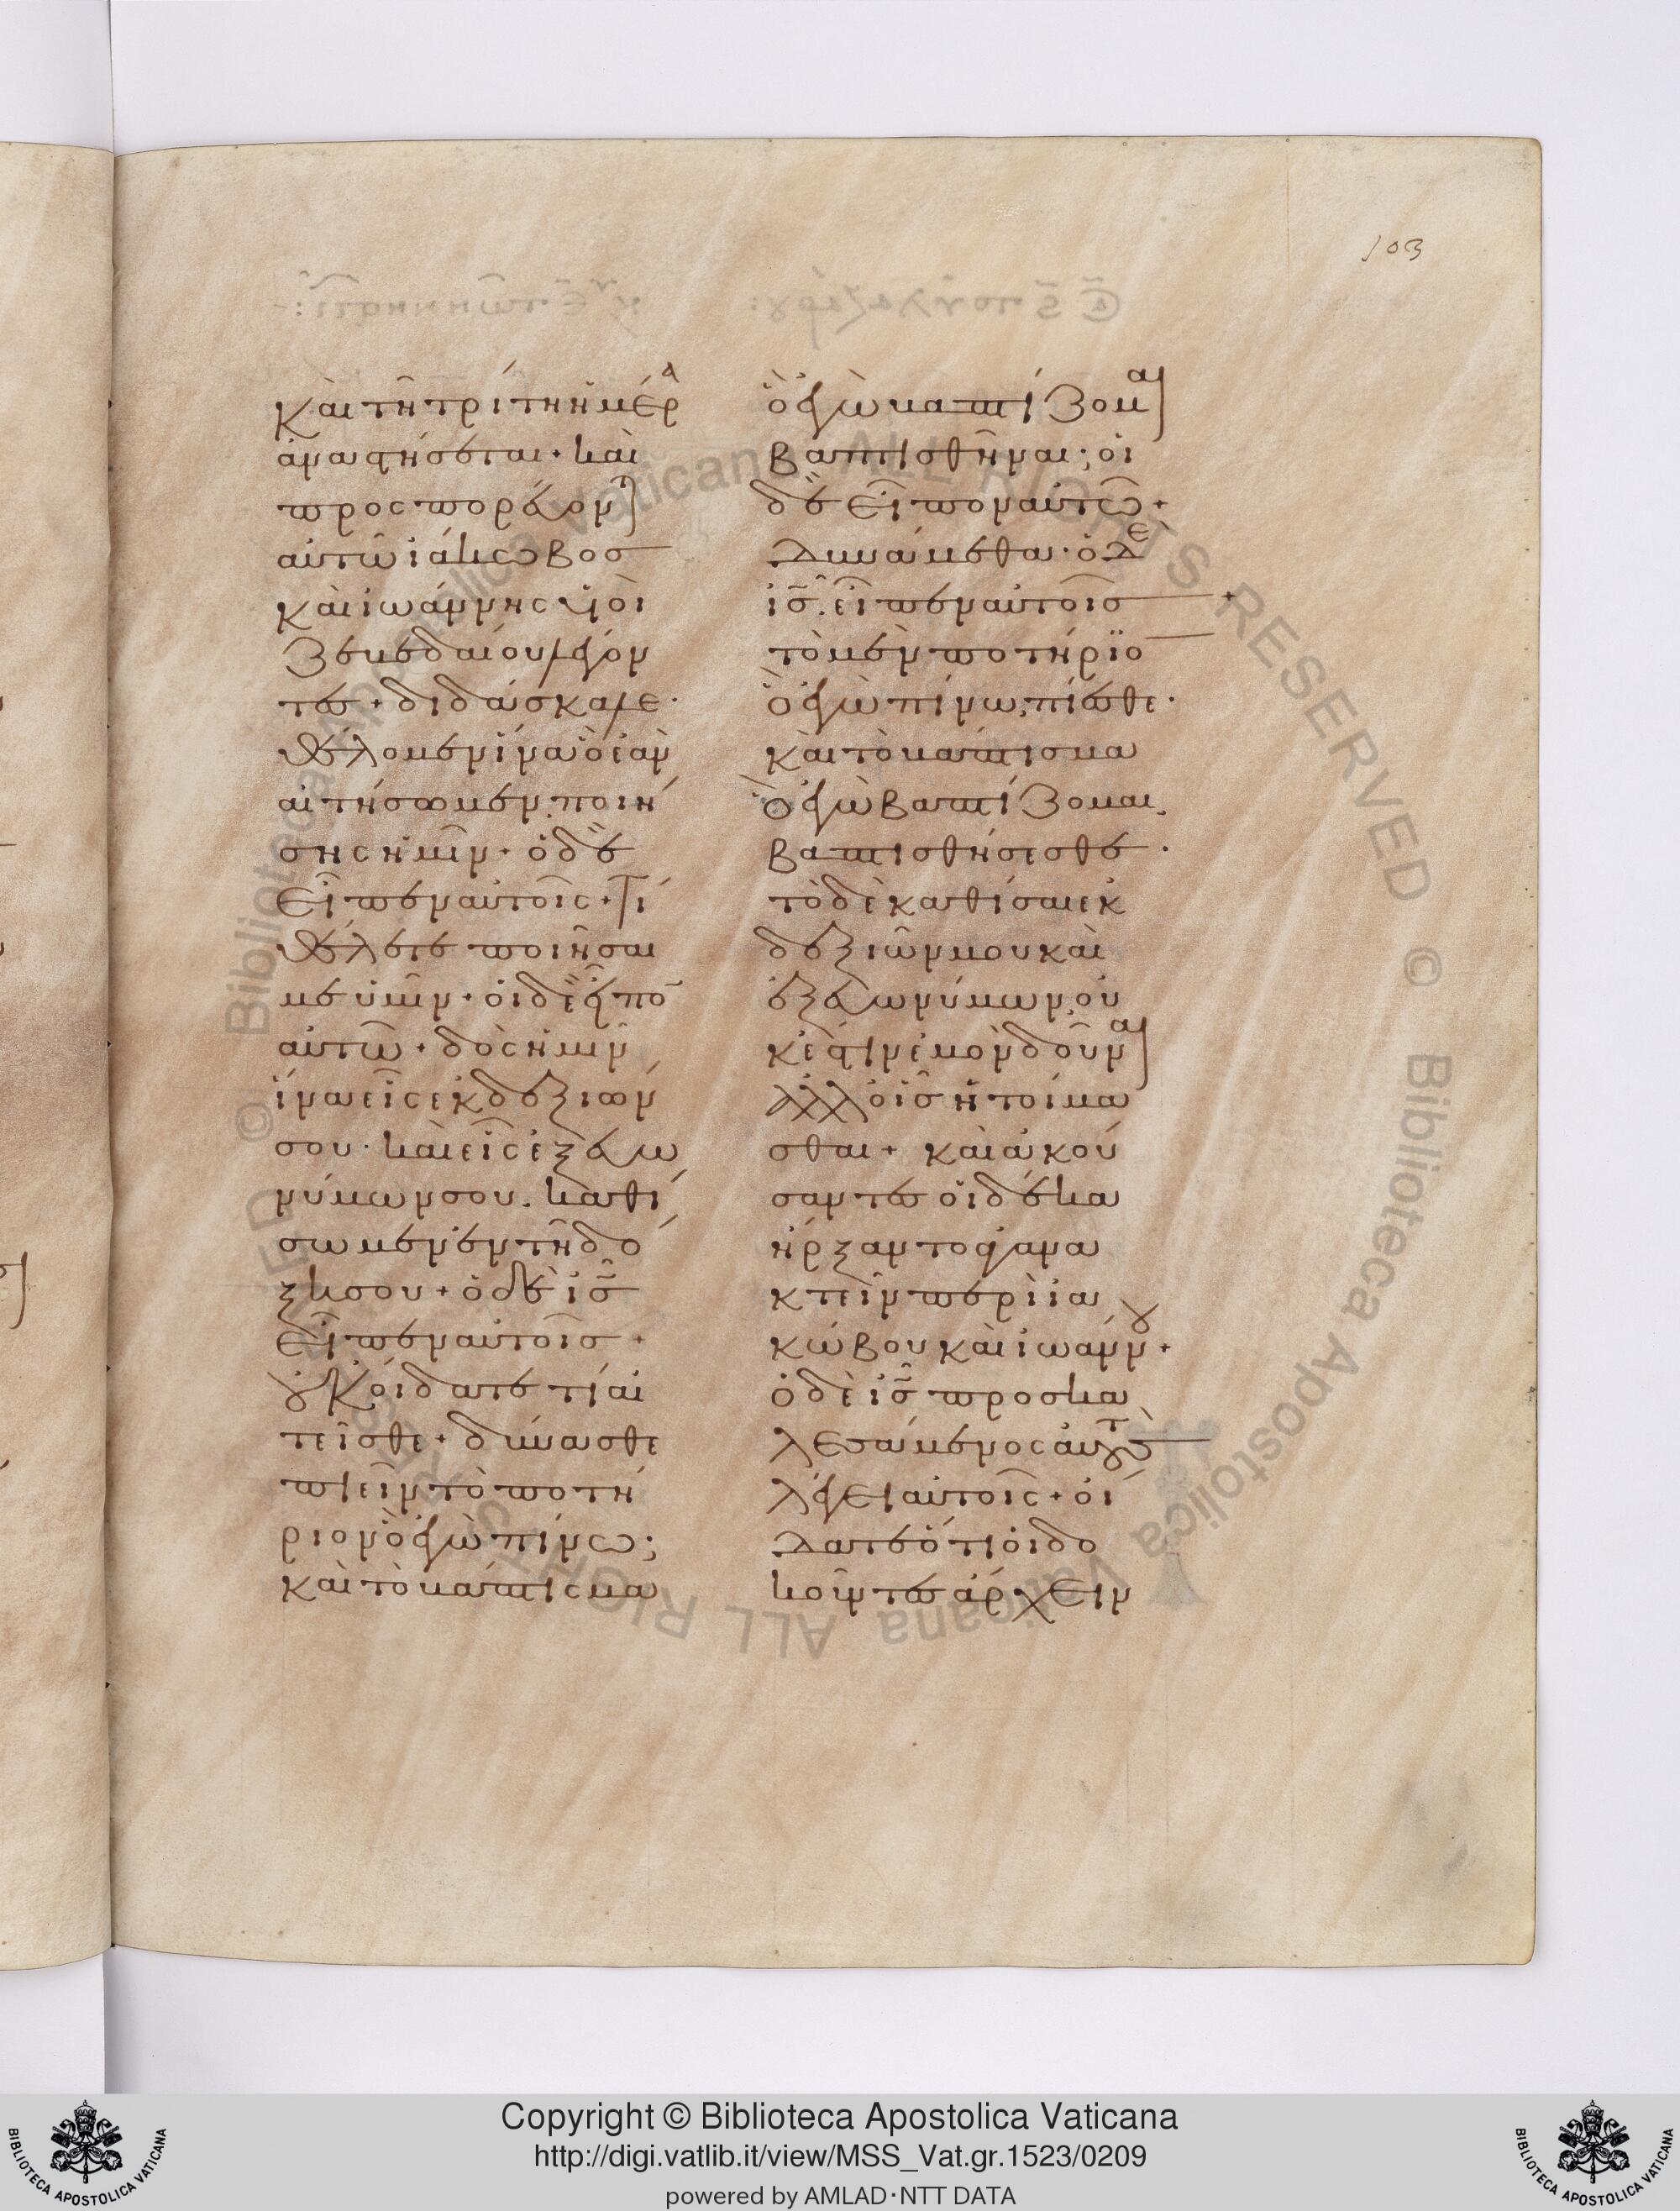 103
καὶ τῆ τρίτη ἡμέρα
ἀναστήσεται + καὶ
προσπορεύον
αὐτῶ ἰάκωβος
καὶ ἰωάννης υἱοὶ
Ζεβεδαίου λέγον
τες + διδάσκαλε ·
θέλομεν ἵνα ὃ ἐὰν
αἰτήσωμεν. ποιή
σης ἡμῖν + ὁ δὲ
εἶπεν αὐτοῖς + τί
θέλετε ποιῆσαι
με ὑμῖν + οἱ δὲ εἶπο
αὐτῶ + δὸς ἡμῖν
ἵνα εἷς ἐκ δεξιῶν
σου · καὶ εἷς ἐξ εὐω
νύμων σου. καθί
σωμεν ἐν τῆ δό
ξη σου + ὁ δὲ ἰς
εἶπεν αὐτοῖς +
οὐκ οἴδατε τί αἰ
τεῖσθε + δύνασθε
πιεῖν τὸ ποτή
ριον ὃ ἐγὼ πίνω ;
καὶ τὸ βάπτισμα
ὃ ἐγὼ βαπτίζομαι
βαπτισθῆναι ; οἱ
δὲ εἶπον αὐτῶ +
δυνάμεθα · ὁ δὲ
ἰς. εἶπεν αὐτοῖς +
τὸ μὲν ποτήριο
ὃ ἐγὼ πίνω, πίεσθε ·
καὶ τὸ βάπτισμα
ὃ ἐγὼ βαπτίζομαι,
βαπτισθήσεσθε ·
τὸ δὲ καθίσαι ἐκ
δεξιῶν μου καὶ
ἐξ εὐωνύμων, οὐ
κ ἔστιν ἐμὸν δοῦναι
ἀλλ' οἷς ἡτοίμα
σθαι + καὶ ἀκού
σαντες οἱ δέκα
ἤρξαντο ἀγανα
κτεῖν περὶ ἰα
κώβου καὶ ἰωάννου +
ὁ δὲ ἰς προσκα
λεσάμενος αὐτοὺς
λέγει αὐτοῖς + οἴ
δατε ὅτι οἱ δο
κοῦντες ἄρχειν
Copyright © Biblioteca Apostolica Vaticana
http://digi.vatlib.it/view/MSS_Vat.gr.1523/0209
powered by AMLAD·NTT DATA
BIBLIOTECA APOSTOLICA VATICANA
BIBLIOTECA APOSTOLICA VATICANA
© Biblioteca Apostolica Vaticana ALL RIGHTS RESERVED © Biblioteca Apostolica Vaticana ALL RIGHTS RESERVED